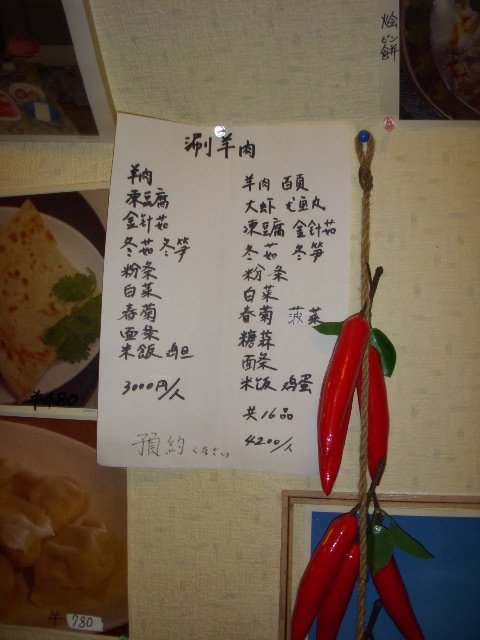 烩
ピン
餅
涮羊肉
羊肉
凍豆腐
金针菇
冬菇 冬笋
粉条
白菜
春菊
面条
米飯 鸡旦
3000円/人
羊肉 百頁
大虾 尤鱼丸
凍豆腐 金针茄
冬茹 冬笋
粉条
白菜
春菊 菠菜
糖蒜
面条
米飯 鸡蛋
共16品
4200/人
預約ください
¥480
¥780